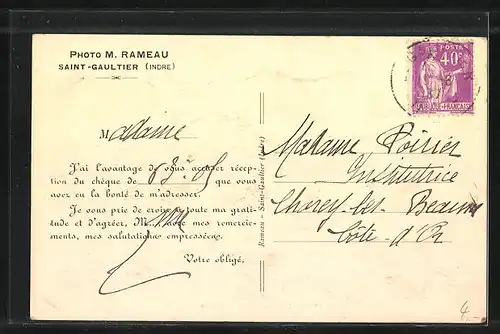 PHOTO M. RAMEAU
SAINT-GAULTIER (INDRE)
POSTES
40c
Madame
J'ai l'avantage de vous accuser récep-
tion du chèque de que vous
avez eu la bonté de m'adresser.
Je vous prie de croire à toute ma grati-
tude et d'agréer, M, avec mes remercie-
ments, mes salutations empressées.
Votre obligé,
Rameau - Saint-Gaultier (Indre)
Madame Poirier
Institutrice
Chorey-les-Beaune
Côte-d'Or
4,-